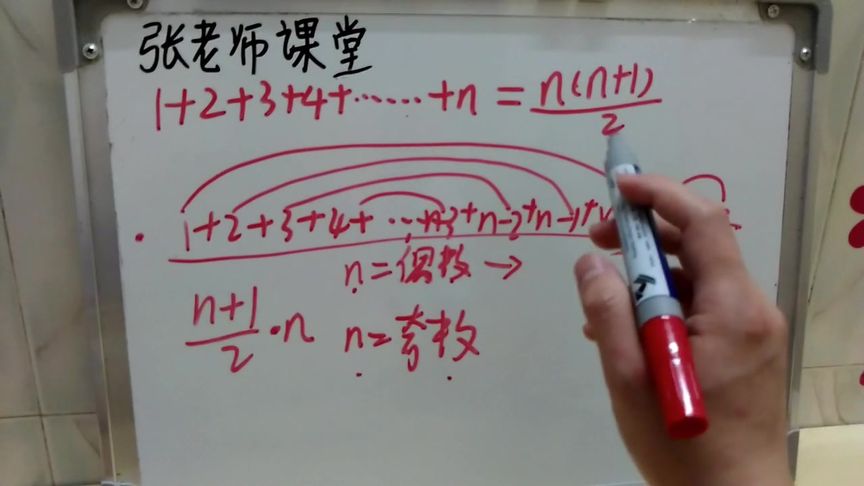 张老师课堂
1+2+3+4+……+n=n(n+1)/2
1+2+3+4+…+n-3+n-2+n-1+
n=偶数→
n+1/2·n n=奇数